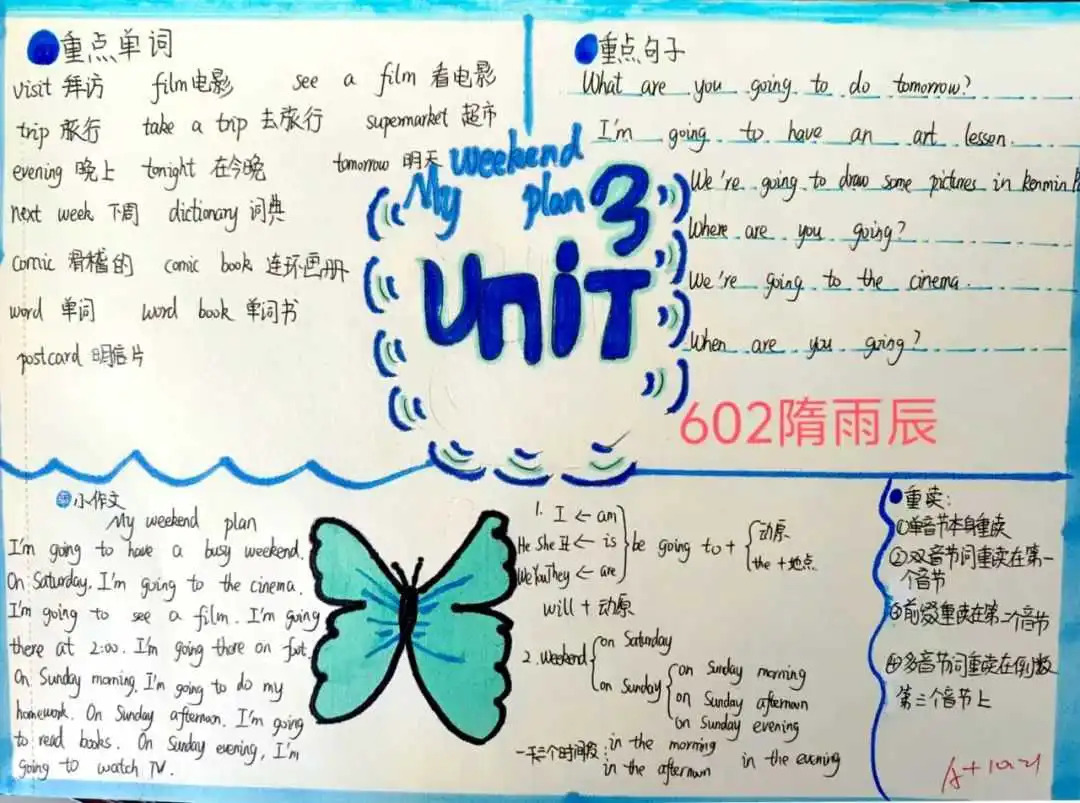 重点单词
visit 拜访 film 电影 see a film 看电影
trip 旅行 take a trip 去旅行 supermarket 超市
evening 晚上 tonight 在今晚 tomorrow 明天
next week 下周 dictionary 词典
comic 滑稽的 comic book 连环画册
word 单词 word book 单词书
postcard 明信片
My weekend plan
Unit 3
重点句子
What are you going to do tomorrow?
I'm going to have an art lesson.
We're going to draw some pictures in Renmin
Where are you going?
We're going to the cinema.
When are you going?
602隋雨辰
小作文
My weekend plan
I'm going to have a busy weekend.
On Saturday. I'm going to the cinema.
I'm going to see a film. I'm going
there at 2:00. I'm going there on foot
On Sunday morning. I'm going to do my
homework. On Sunday afternoon. I'm going
to read books. On Sunday evening, I'm
going to watch TV.
1. I ← am
He She It ← is
We You They ← are
be going to + 动原
the + 地点
will + 动原
2. weekend on Saturday
on Sunday on Sunday morning
on Sunday afternoon
on Sunday evening
一天三个时间段: in the morning
in the afternoon in the evening
重读:
①单音节本身重读
②双音节词重读在第一
个音节
③前缀重读在第二个音节
④多音节词重读在倒数
第三个音节上
A+ 10.21